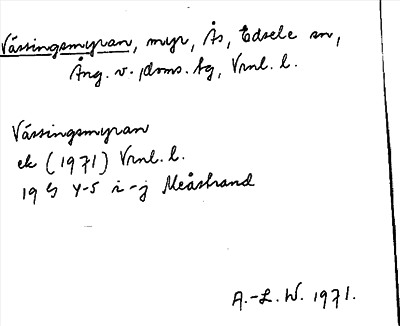 Vässingsmyran, myr, Ås, Edsele sn,
Ång. v. doms. hg, Vrnl. l.
Vässingsmyran
ek (1971) Vrnl. l.
19 G 4-5 i-j Meåstrand
A.-L. W. 1971.